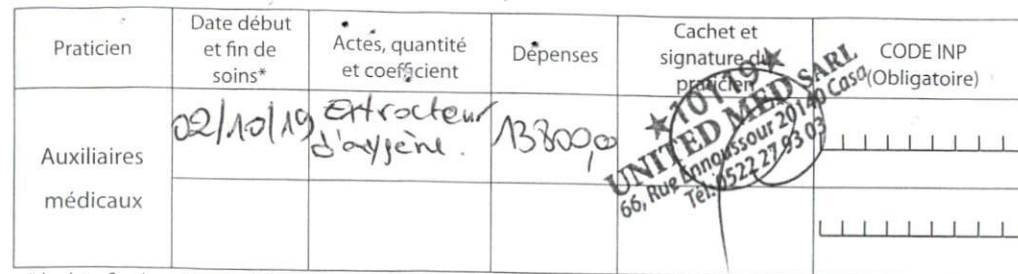 Praticien
Date début
et fin de
soins*
Actes, quantité
et coefficient
Dépenses
Cachet et
signature du
praticien
CODE INP
(Obligatoire)
Auxiliaires
médicaux
02/10/19
Extracteur
d'oxygène.
13800,00
★ 10119 ★
UNITED MED SARL
66, Rue Annoussour 20140 Casa
Tél: 0522 27 93 03